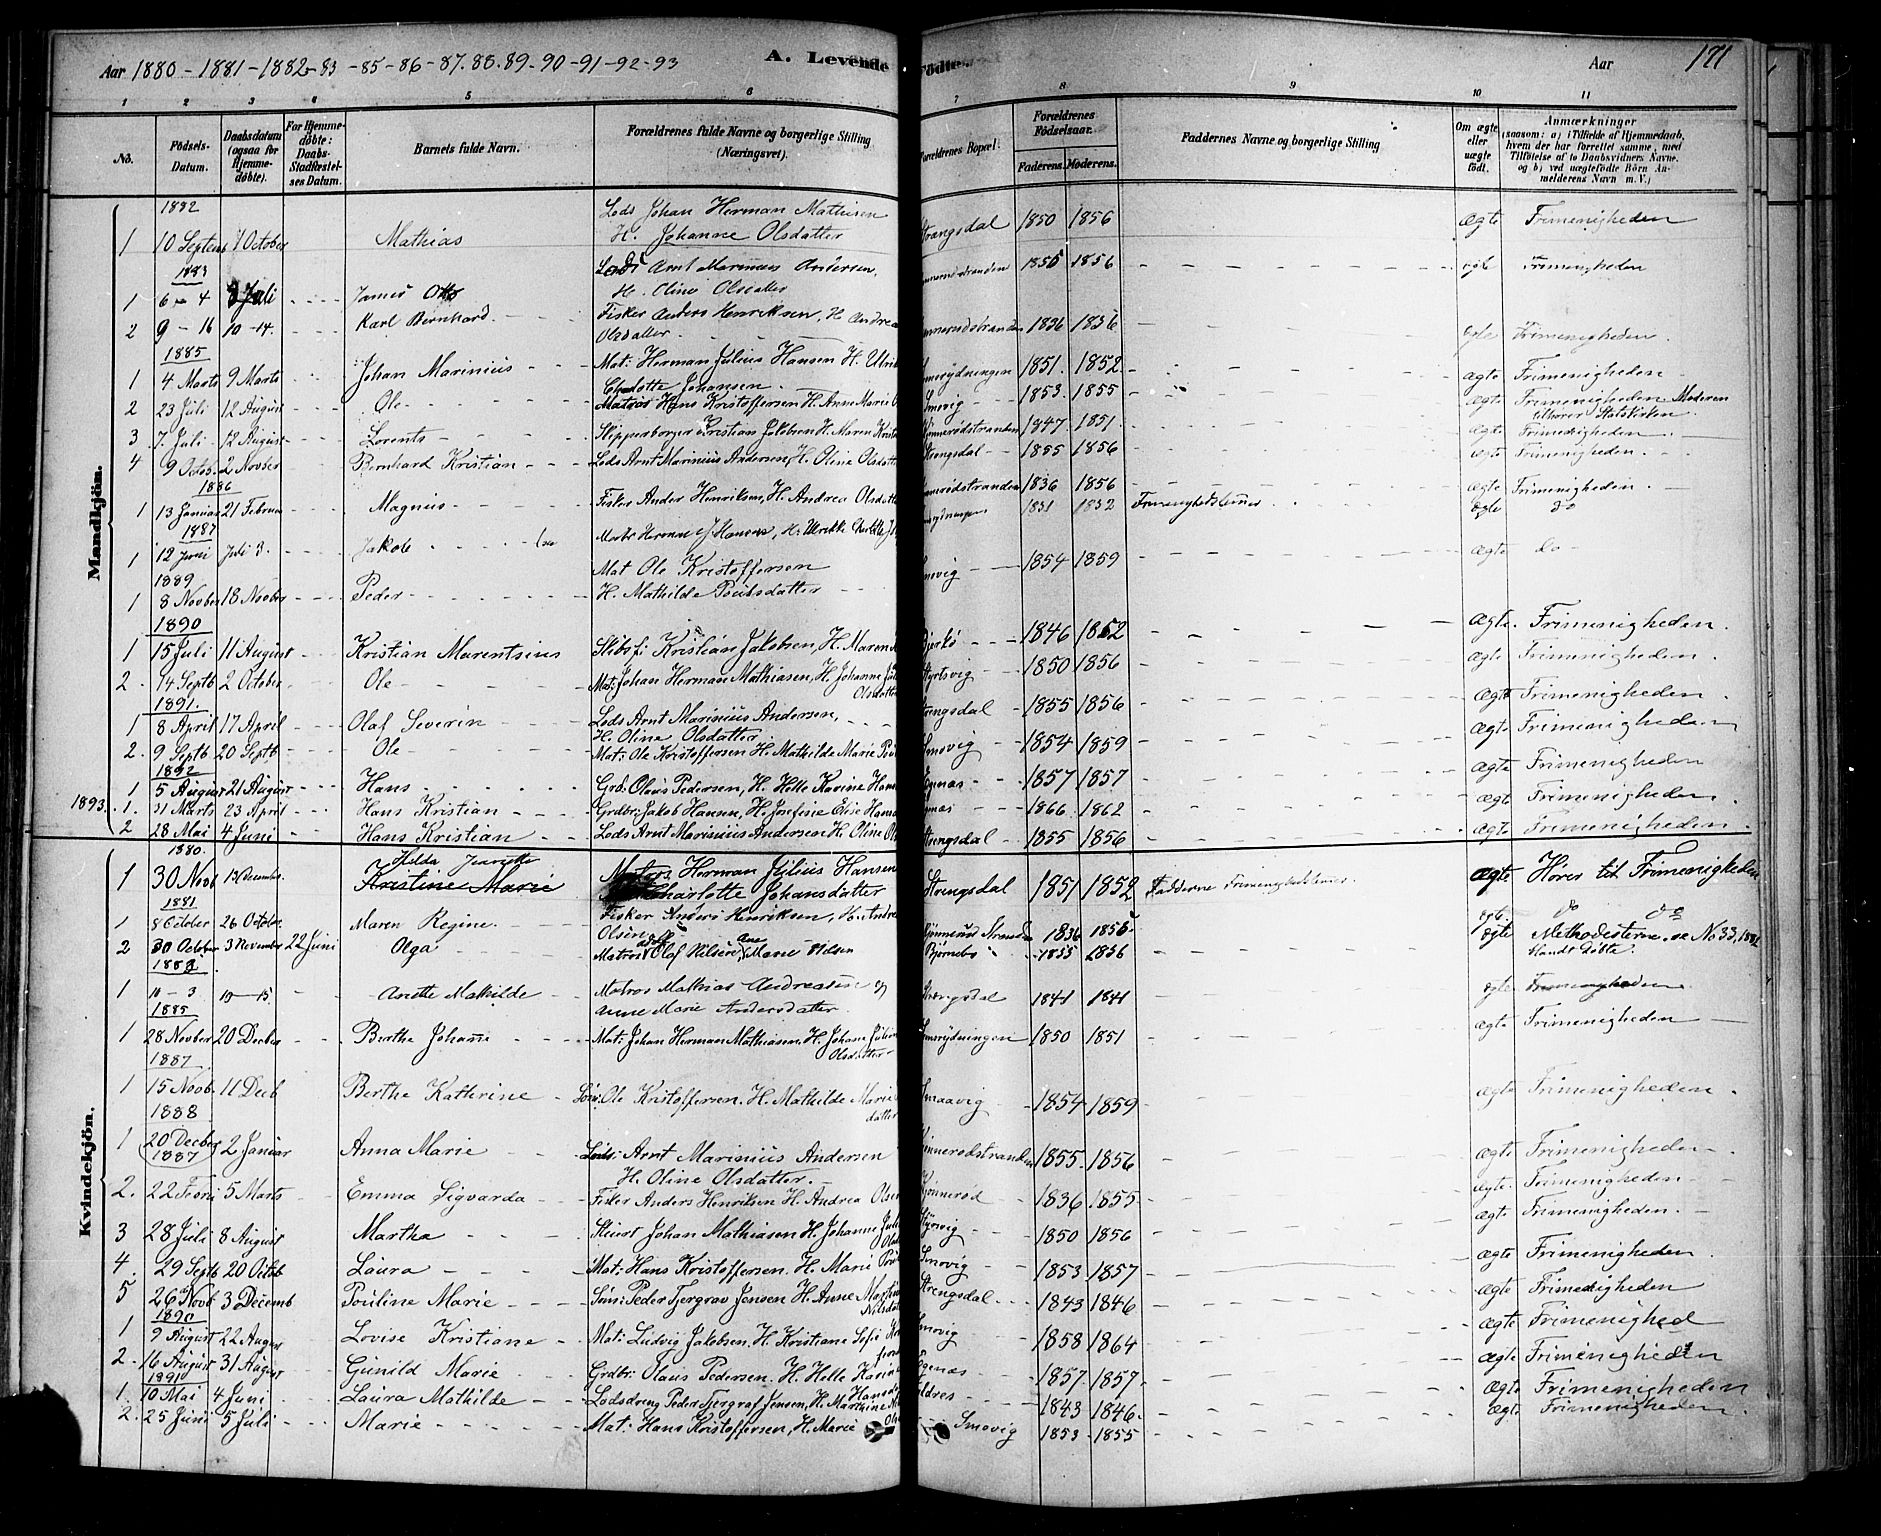 Aar 1880 - 1881 - 1882 - 83 - 85 - 86 - 87. 88. 89. - 90 - 91 - 92 - 93 A. Levende Fødte. Aar 171
1 2 3 4 5 6 7 8 9 10 11
No. Fødsels-Datum. Daabsdatum (ogsaa for Hjemme-døbte). For Hjemme-døbte: Daabs-Stadfæstel-ses Datum. Barnets fulde Navn. Forældrenes fulde Navne og borgerlige Stilling (Næringsvei). Forældrenes Bopæl. Forældrenes Fødselsaar. Faderens. Moderens. Faddernes Navne og borgerlige Stilling Om ægte eller uægte født. Anmærkninger (saasom: a) i Tilfælde af Hjemmedaab, hvem der har forrettet samme, med Tilføielse af to Daabsvidners Navne, og b) ved uægtefødte Børn An-melderens Navn m. V.)
Mandkjøn.
1882
1 10 Septem 1 October Mathias Lods Johan Herman Mathisen H. Johanne Olsdatter Strangsdal 1850 1856 Ægte Frimenigheden
1883
1 6 - 4 8 Juli James Otto Lods Arnt Marinius Andersen, H. Oline Olsdatter 1855 1856 ægte Frimenigheden
2 9 - 16 10 - 14. Karl Bernhard Fisker Anders Henriksen, H. Andrea Olsdatter 1836 1836 ægte Frimenigheden.
1885
1 4 Marts 9 Marts Johan Marinius Mat: Herman Julius Hansen H. Ulrik Charlotte Johansen. 1851. 1852 ægte Frimenigheden
2 23 Juli 12 August Ole Matros Hans Kristoffersen H. Anne Marie Smovig 1853. 1855 ægte Frimenigheden Moderen tilhører Statskirken
3 7. Juli 12 August Lorents Skipperborger Kristian Jakobsen H. Maren 1847. 1851 ægte Frimenigheden.
4 9 Octob. 2 Novber Bernhard Kristian Lods Arnt Marinius Andersen, H. Oline Olsdatter Strengsdal 1855 1856 ægte Frimenigheden.
1886
1 13 Januar 21 Februar Magnus Fisker Ander Henriksen, H. Andrea Olsdatter 1836 1856 ægte Frimenigheden.
1887
1 12 Juni Juli 3. Jakob Herman J Hansen, H. Ulrikke Charlotte 1851 1852 ægte do
1889
1 8 Novber 18 Novber Peder Mat Ole Kristoffersen H. Mathilde Poulsdatter Smovig 1854 1859 ægte do
1890
1 15 Juli 11 August Kristian Marentsius Skibsf: Kristian Jakobsen, H. Maren Bjerkø 1846 1852 Ægte. Frimenigheden.
2. 14 Septb 2 October Ole Mat: Johan Herman Mathiasen, H. Johanne Olsdatter 1850 1856 ægte Frimenigheden.
1891.
1 8 April 17 April Olaf Severin Lods Arnt Marinius Andersen, H. Oline Olsdatter. Strengsdal 1855 1856 Ægte Frimenigheden.
2. 9 Septb 20 Septb Ole Mat: Ole Kristoffersen H. Mathilde Marie Smovig 1854 1859 ægte Frimenigheden
1892
1 5 August 21 August Hans Grd: Olaus Pedersen, H. Helle Karine 1857 1857 Ægte Frimenigheden
1893. 1. 31 Marts 23 April Hans Kristian Grdbr: Jakob Hansen, H. Josefine Elise 1866. 1862 ægte Frimenigheden.
2 28 Mai 4 Juni Hans Kristian Lods Arnt Marinius Andersen H. Oline Strengsdal 1855 1856 ægte Frimenigheden.
Kvindekjøn.
1880.
1 30 Novb 13 December. Hilda Jeanette Kristine Marie Matros Herman Julius Hansen Charlotte Johansdatter Strengsdal 1851 1852 Fadderne Ægte Hører til Frimenigheden
1881
1 8 October 26 October. Maren Regine. Fisker Anders Henriksen, H. Andrea Olsen 1836 1855 ægte. do
2 30 October 3 November 22 Juni Olga Matros Olaf Nilsen, Marie Nilsen Bjørnebo 1855 1836 ægte Methodisterne. se No 33, 1881
1883
1 10 - 3 10 - 15. Anette Mathilde Matros Mathias Andreasen og Anne Marie Andersdatter. Strengsdal 1841 1841 ægte Frimenigheden
1885
1 28 Novber 20 Decber Berthe Johanne Mat: Johan Herman Mathiasen, H. Johanne Olsdatter 1850 1851 ægte Frimenigheden
1887.
1 15 Novb 11 Decb Berthe Kathrine Ole Kristoffersen. H. Mathilde Marie Smaavig 1854 1859 ægte Frimenigheden.
1888
1 20 Decber 1887 2 Januar Anna Marie Lods: Arnt Marinius Andersen H. Oline Olsdatter. 1855. 1856 ægte Frimenigheden.
2. 22 Febru 5 Marts Emma Sigvarda Fisker Anders Henriksen H. Andrea Olsen Kjønnerød 1836 1855 ægte. Frimenigheden.
3 28 Juli 8 August Martha Stuert Johan Mathiasen H. Johanne 1850 1856 ægte Frimenigheden.
4. 29 Septb 20 Octob Laura Mat: Hans Kristoffersen. H. Marie Smovig 1853 1857 ægte Frimenigheden.
5 26 Novb 3 Decemb Pouline Marie Peder Tjergrav Jensen H. Anne Strengsdal. 1843 1846 ægte Frimenigheden
1890
1 9 August 22 August Lovise Kristiane Mat: Ludvig Jakobsen. H. Kristiane Sofie Smovig 1858 1864 ægte Frimenighed
2. 16 August 31 August Gunild Marie Grdbr: Olaus Pedersen. H. Helle Karine Hansd 1857 1857. Ægte Frimenigheden
1891
1. 10 Mai 4 Juni Laura Mathilde Lodsdreng Peder Tjergraf Jensen, H. Marthine 1843 1846. Ægte Frimenigheden
2. 25 Juni 5 Juli Marie Mat: Hans Kristoffersen, H. Marie Smovig 1853 1855 ægte Frimenigheden.